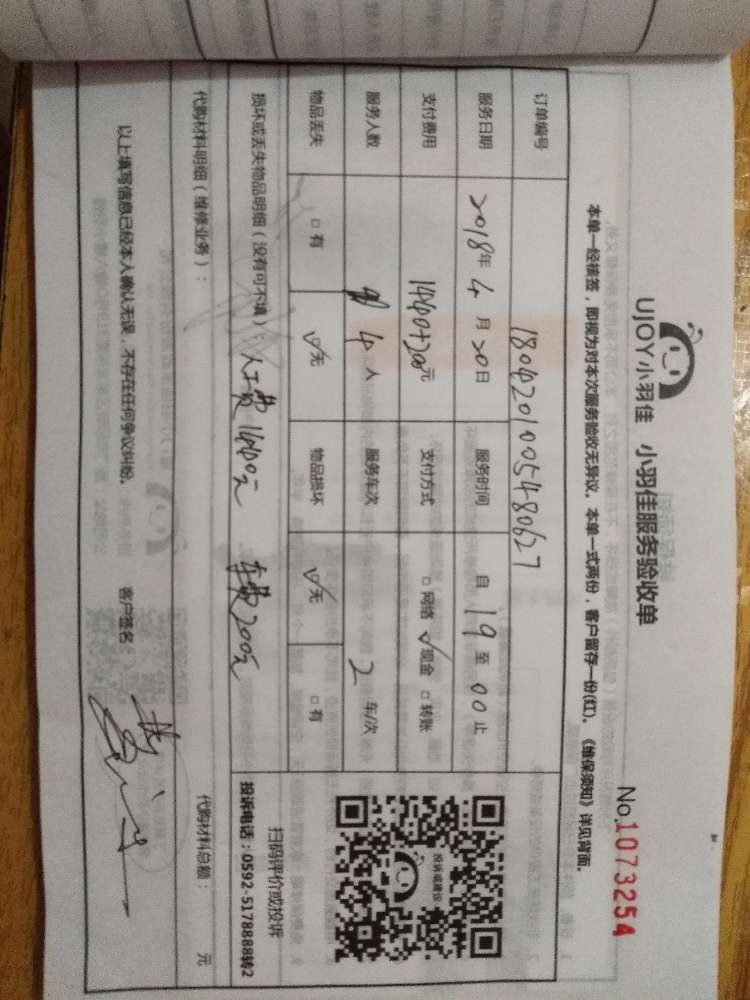 UJOY小羽佳 小羽佳服务验收单
No.1073254
本单一经核签，即视为对本次服务验收无异议。本单一式两份，客户留存一份(红)。《维保须知》详见背面。
订单编号 1804201005480627
服务日期 2018年 4 月 20日 服务时间 自 19 至 00 止
支付费用 1440+200元 支付方式 □网络 ☑现金 □转账
服务人数 4 人 服务车次 2 车/次
物品丢失 □有 ☑无 物品损坏 ☑无 □有
投诉或建议
扫码评价或投诉
投诉电话：0592-5178888转2
损坏或丢失物品明细（没有可不填）：人工费1440元 车费200元
代购材料明细（维修业务）： 代购材料总额： 元
以上填写信息已经本人确认无误，不存在任何争议纠纷。 客户签名：